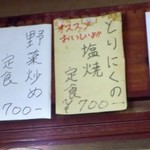 オススメ
おいしい!!
とりにくの
塩焼
定食
700-
野菜炒め
定食
700-